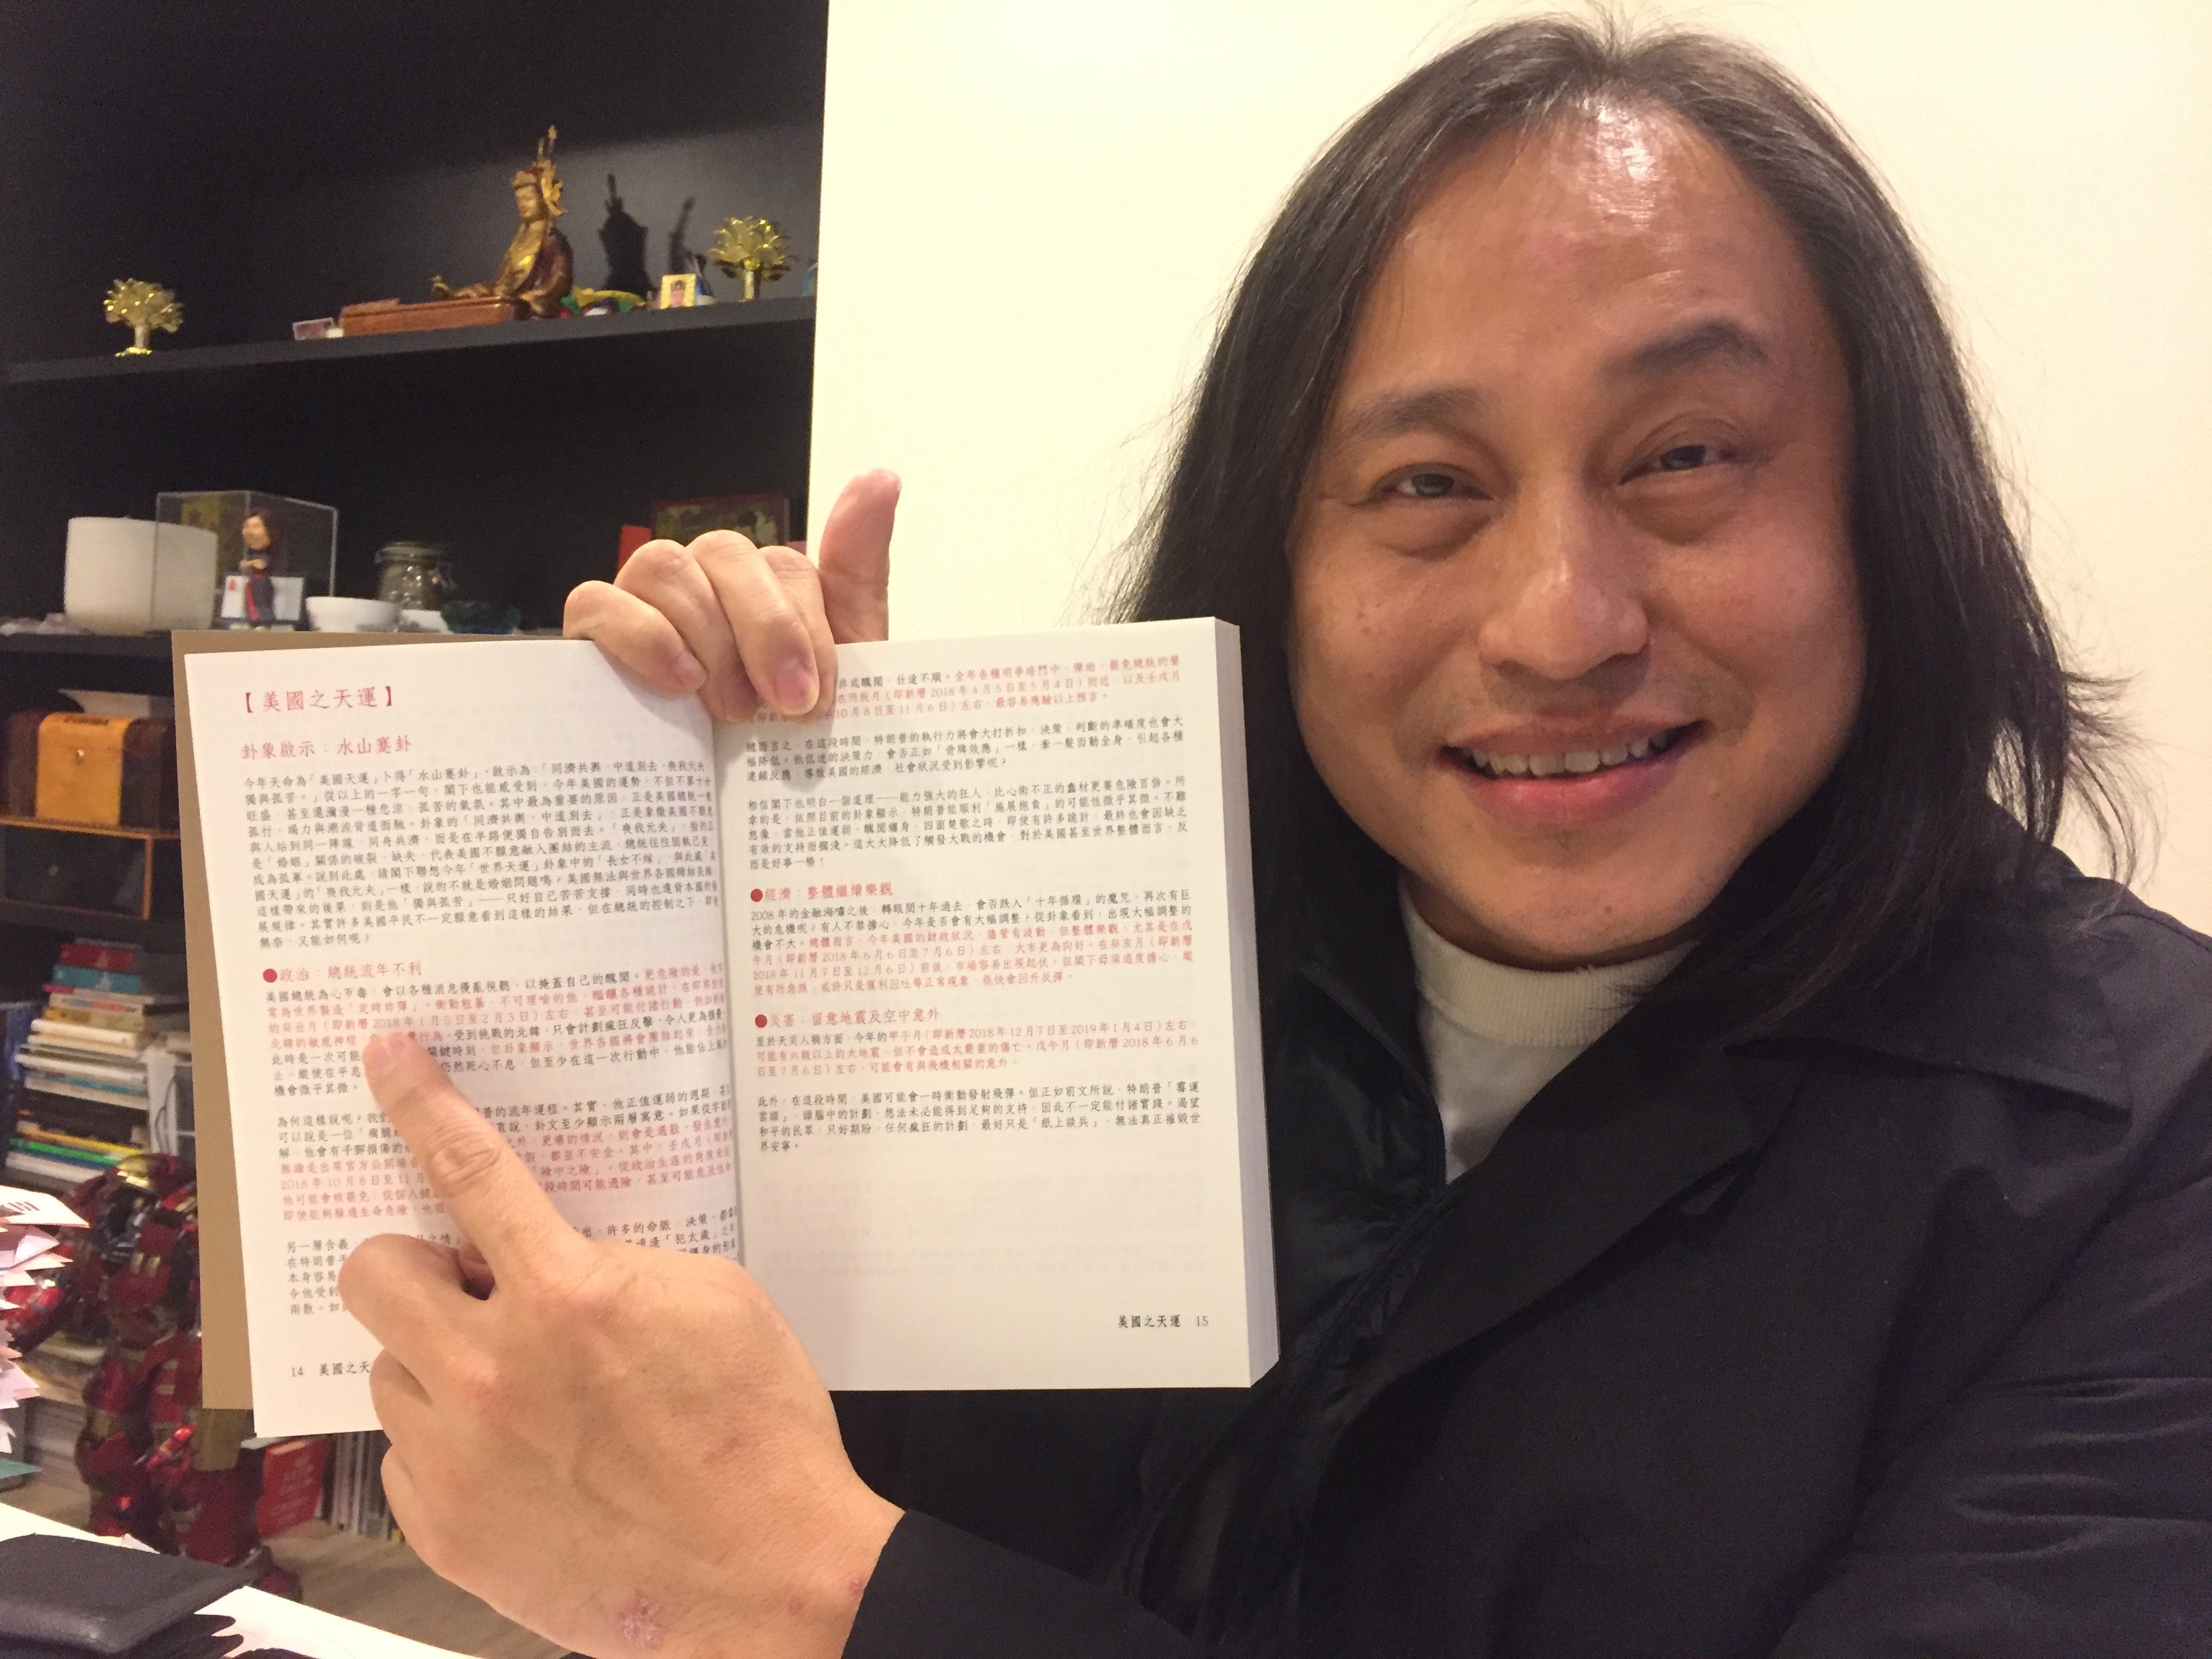 【美國之天運】
卦象啟示：水山蹇卦
今年天命為「美國天運」卜得「水山蹇卦」，啟示為：「同濟共輿，中道別去，喪我元夫，
獨與孤苦。」從以上的一字一句，閣下也能感受到，今年美國的運勢，不但不算十分
旺盛，甚至還瀰漫一種悲涼、孤苦的氣氛。其中最為重要的原因，正是美國總統一意
孤行，竭力與潮流背道而馳。卦象的「同濟共輿，中道別去」，正是象徵美國不願意
與人站到同一陣線，同舟共濟，而是在半路便獨自告別而去。「喪我元夫」，指的正
是「婚姻」關係的破裂、缺失，代表美國不願意融入團結的主流，總統往往固執己見，
成為孤軍。說到此處，請閣下聯想今年「世界天運」卦象中的「長女不嫁」，與此處「美
國天運」的「喪我元夫」一樣，說的不就是婚姻問題嗎？美國無法與世界各國締結良緣，
這樣帶來的後果，則是他「獨與孤苦」——只好自己苦苦支撐，同時也違背本國的發
展規律。其實許多美國平民不一定願意看到這樣的結果，但在總統的控制之下，即使
無奈，又能如何呢？
●政治：總統流年不利
美國總統為心歹毒，會以各種消息擾亂視聽，以掩蓋自己的醜聞。更危險的是，他
常為世界製造「定時炸彈」。衝動粗暴、不可理喻的他，醞釀各種詭計，在即將到
的癸丑月（即新曆2018年1月5日至2月3日）左右，甚至可能付諸行動，例如
北韓的敏感神經 行為，受到挑戰的北韓，只會計劃瘋狂反擊，令人更為擔憂
此時是一次可能 關鍵時刻，但卦象顯示，世界各國將會團結起來，全力
止。縱使在平息 仍然死心不息，但至少在這一次行動中，他能佔上風
機會微乎其微。
為何這樣說呢？我們 普的流年運程。其實，他正值運弱的週期，甚
可以說是一位「病 直說，卦文至少顯示兩層寓意。如果從字面
解，他會有手腳損傷的 之外，更壞的情況，則會是遇敵、發生意外
無論是出席官方公開場合 都並不安全。其中，壬戌月（即新
2018年10月8日至11月 「險中之險」。從政治生涯的角度來
他可能會被罷免；從個人健 段時間可能遇險，甚至可能危及性命
即使能夠躲過生命危險，也
另一層含義， 之情」 出，許多的命脈、決策，都
在特朗普 這邊「犯太歲」之
本身容易 纏身的形
令他受到
兩敗。如
14 美國之天
非或醜聞，仕途不順。全年各種明爭暗鬥中，彈劾、罷免總統的聲
在丙辰月（即新曆2018年4月5日至5月4日）附近，以及壬戌月
（即新 10月8日至11月6日）左右，最容易應驗以上預言。
總而言之，在這段時間，特朗普的執行力將會大打折扣，決策、判斷的準確度也會大
幅降低。他低迷的決策力，會否正如「骨牌效應」一樣，牽一髮而動全身，引起各種
連鎖反應，導致美國的經濟、社會狀況受到影響呢？
相信閣下也明白一個道理——能力強大的狂人，比心術不正的蠢材更要危險百倍。所
幸的是，依照目前的卦象顯示，特朗普能順利「施展抱負」的可能性微乎其微。不難
想像，當他正值運弱、醜聞纏身、四面楚歌之時，即使有許多詭計，最終也會因缺乏
有效的支持而擱淺。這大大降低了觸發大戰的機會，對於美國甚至世界整體而言，反
而是好事一樁！
●經濟：整體繼續樂觀
2008年的金融海嘯之後，轉眼間十年過去，會否跌入「十年循環」的魔咒，再次有巨
大的危機呢？有人不禁擔心，今年是否會有大幅調整？從卦象看到，出現大幅調整的
機會不大。總體而言，今年美國的財政狀況，儘管有波動，但整體樂觀，尤其是在戊
午月（即新曆2018年6月6日至7月6日）左右，大市更為向好。在癸亥月（即新曆
2018年11月7日至12月6日）前後，市場容易出現起伏。但閣下毋須過度擔心，縱
使有所急跌，或許只是獲利回吐等正常現象，很快會回升反彈。
●災害：留意地震及空中意外
至於天災人禍方面，今年的甲子月（即新曆2018年12月7日至2019年1月4日）左右，
可能有六級以上的大地震，但不會造成太嚴重的傷亡。戊午月（即新曆2018年6月6
日至7月6日）左右，可能會有與飛機相關的意外。
此外，在這段時間，美國可能會一時衝動發射飛彈。但正如前文所說，特朗普「霉運
當頭」，頭腦中的計劃、想法未必能得到足夠的支持，因此不一定能付諸實踐。渴望
和平的民眾，只好期盼，任何瘋狂的計劃，最好只是「紙上談兵」，無法真正摧毀世
界安寧。
美國之天運 15